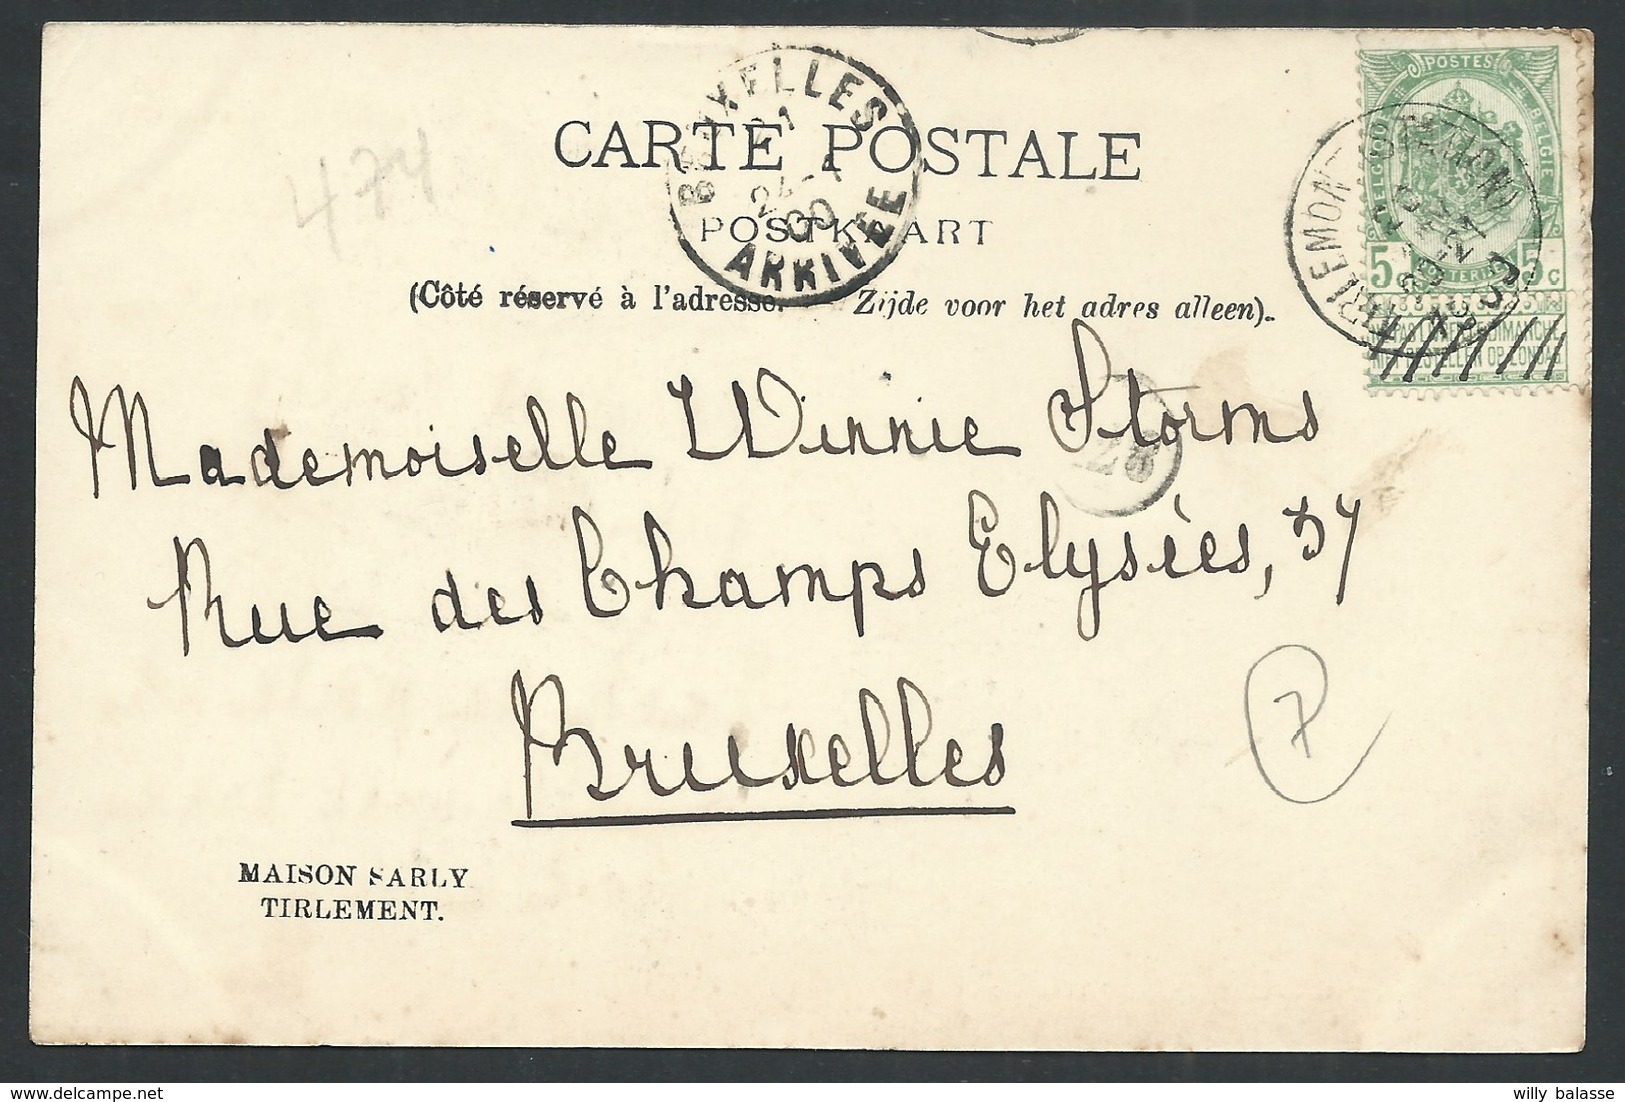 BRUXELLES
21
00
ARRIVÉE
CARTE POSTALE
POSTKAART
(Côté réservé à l'adresse. Zijde voor het adres alleen).
474
POSTES
BELGIQUE
BELGIE
5c
5c
TIRLEMONT
28
Mademoiselle Winnie Storms
Rue des Champs Elysées, 37
Bruxelles
7
MAISON SARLY
TIRLEMENT.
willy balasse